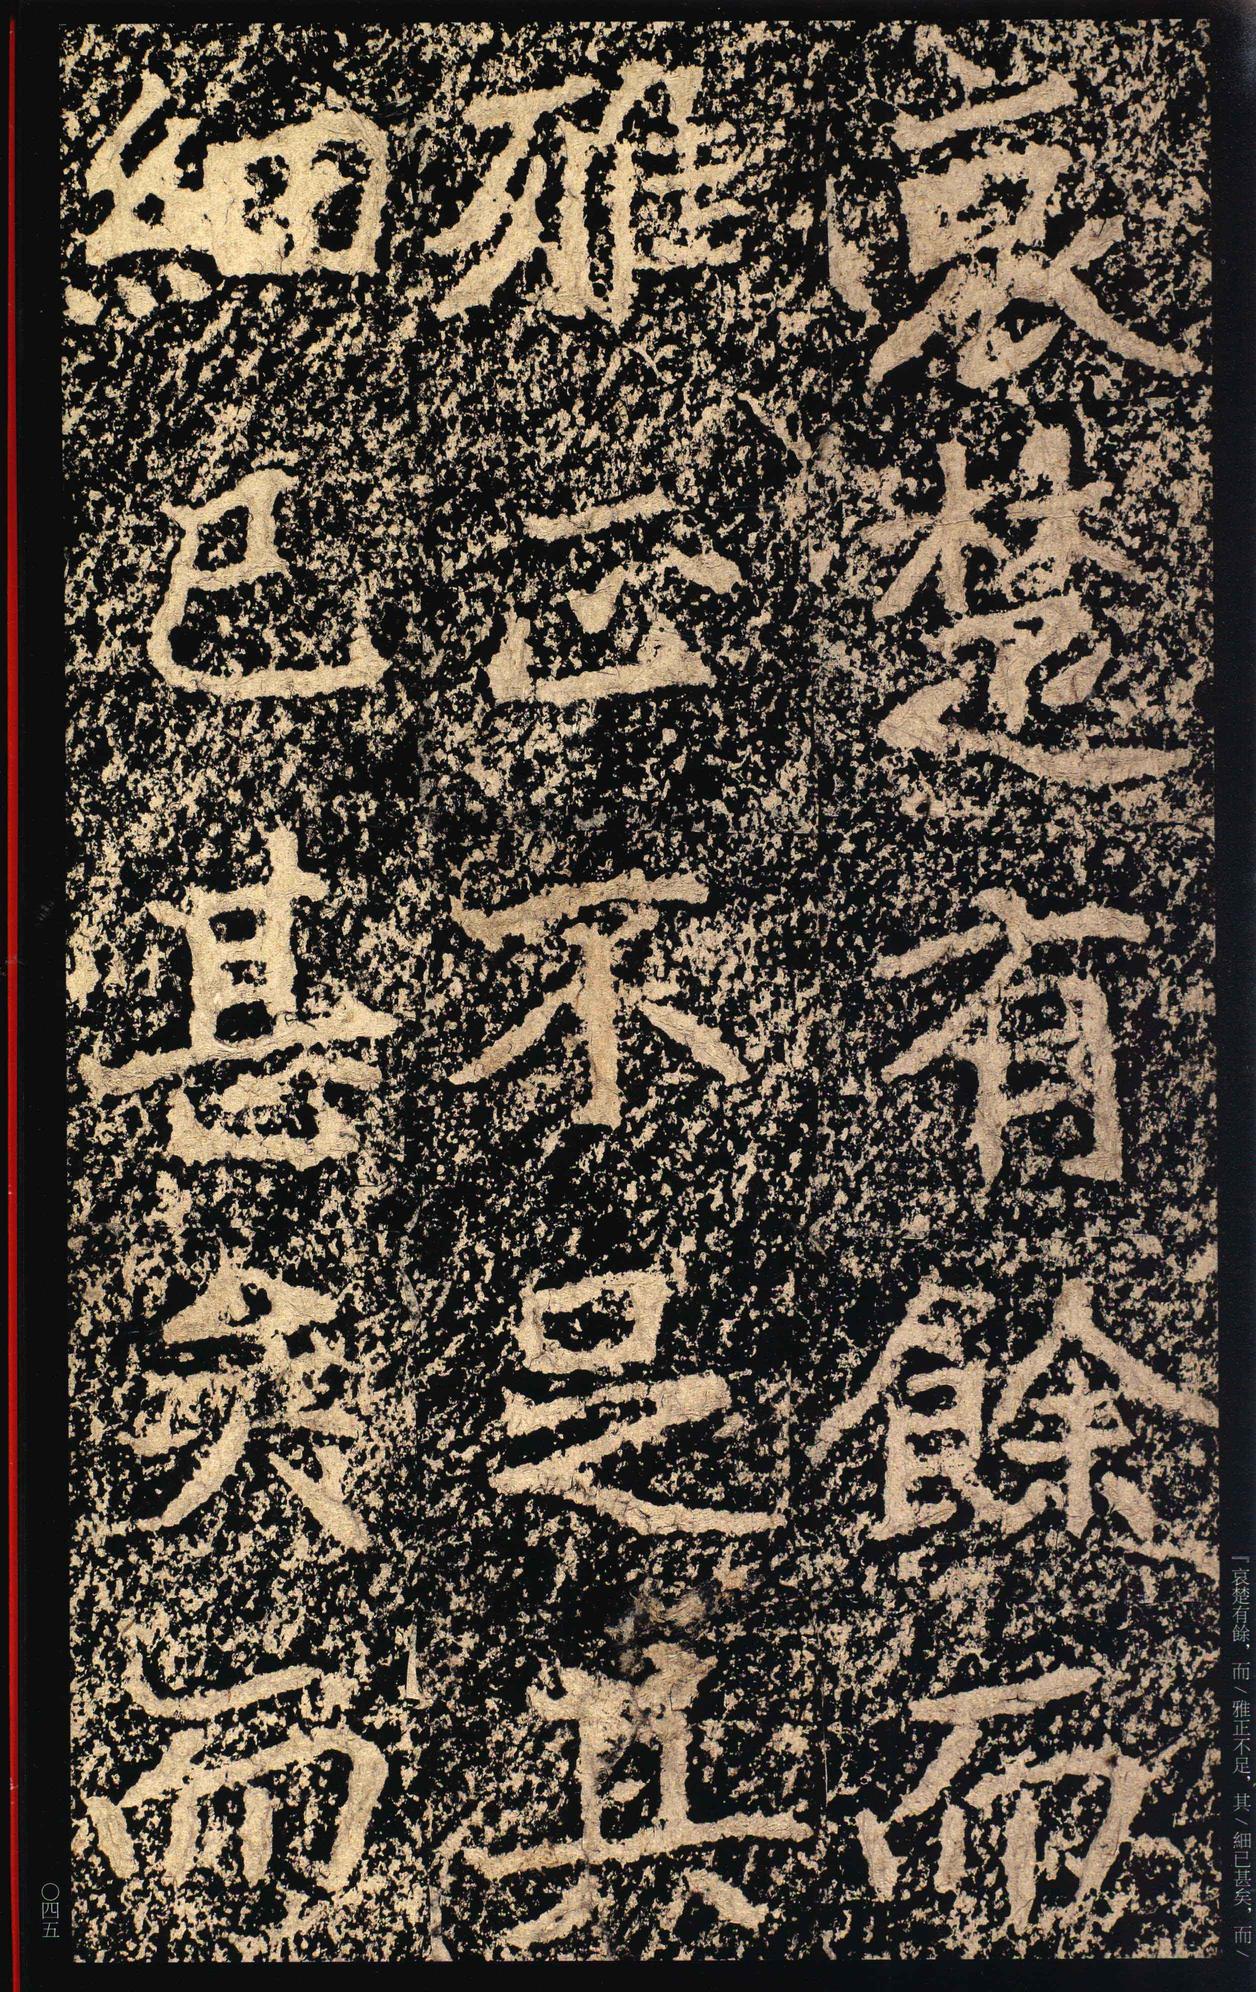 哀楚有餘而
雅正不足其
細已甚矣而
『哀楚有餘 而／雅正不足，其／細已甚矣，而／
〇四五